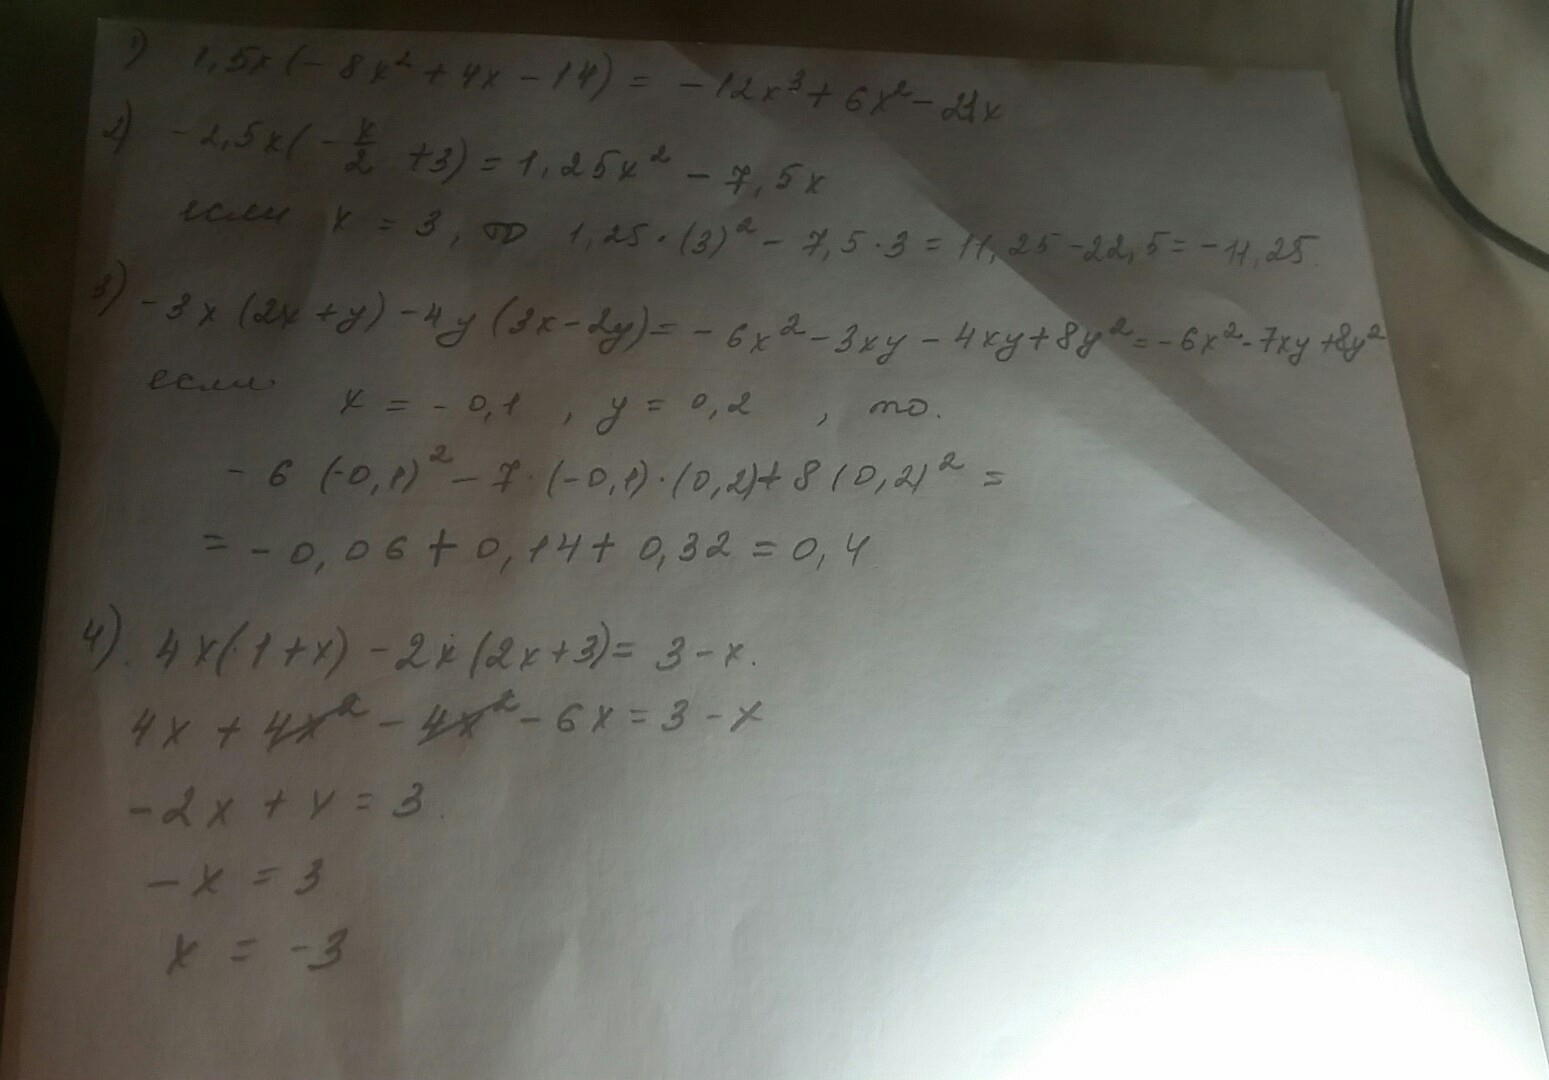 1) 1,5x(-8x² + 4x - 14) = -12x³ + 6x² - 21x
2) -2,5x(-x/2 + 3) = 1,25x² - 7,5x
если x = 3, то 1,25·(3)² - 7,5·3 = 11,25 - 22,5 = -11,25.
3) -3x(2x+y) - 4y(3x-2y) = -6x² - 3xy - 4xy + 8y² = -6x² - 7xy + 8y²
если x = -0,1, y = 0,2, то.
-6(-0,1)² - 7·(-0,1)·(0,2) + 8(0,2)² =
= -0,06 + 0,14 + 0,32 = 0,4
4). 4x(1+x) - 2x(2x+3) = 3-x.
4x + 4x² - 4x² - 6x = 3 - x
-2x + x = 3.
-x = 3
x = -3